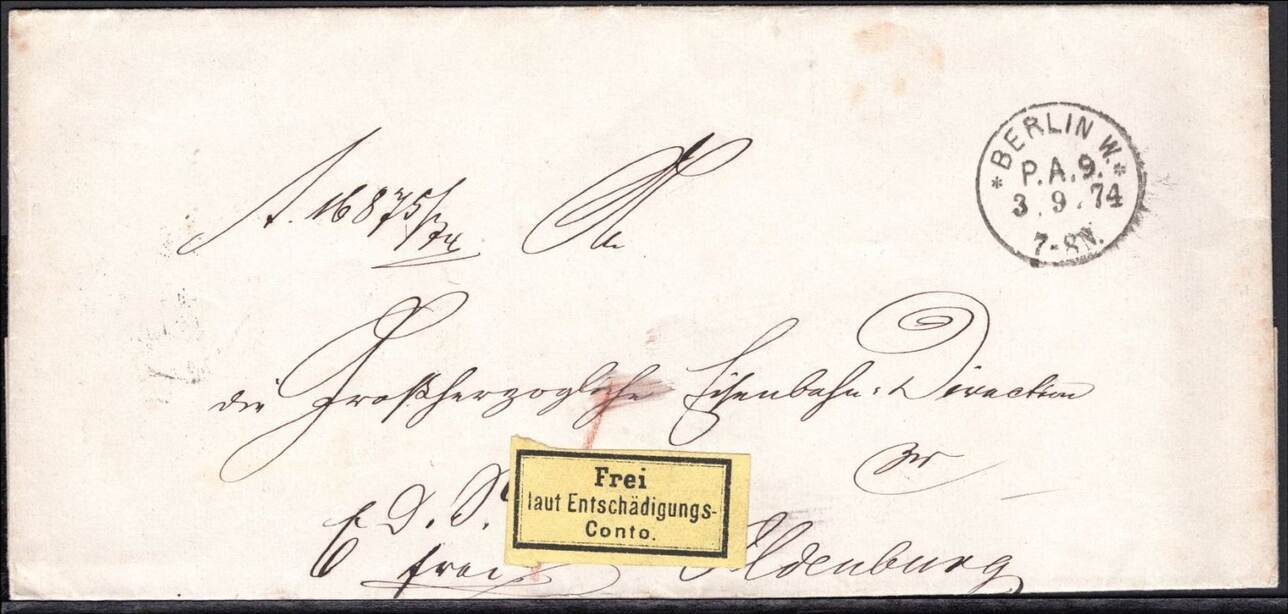 BERLIN W.
P.A.9.
3.9.74
7-8N.
A. 16875/74
An
die Großherzogliche Eisenbahn-Direction
zu
Frei
laut Entschädigungs-
Conto.
E. D. S.
frei
Oldenburg